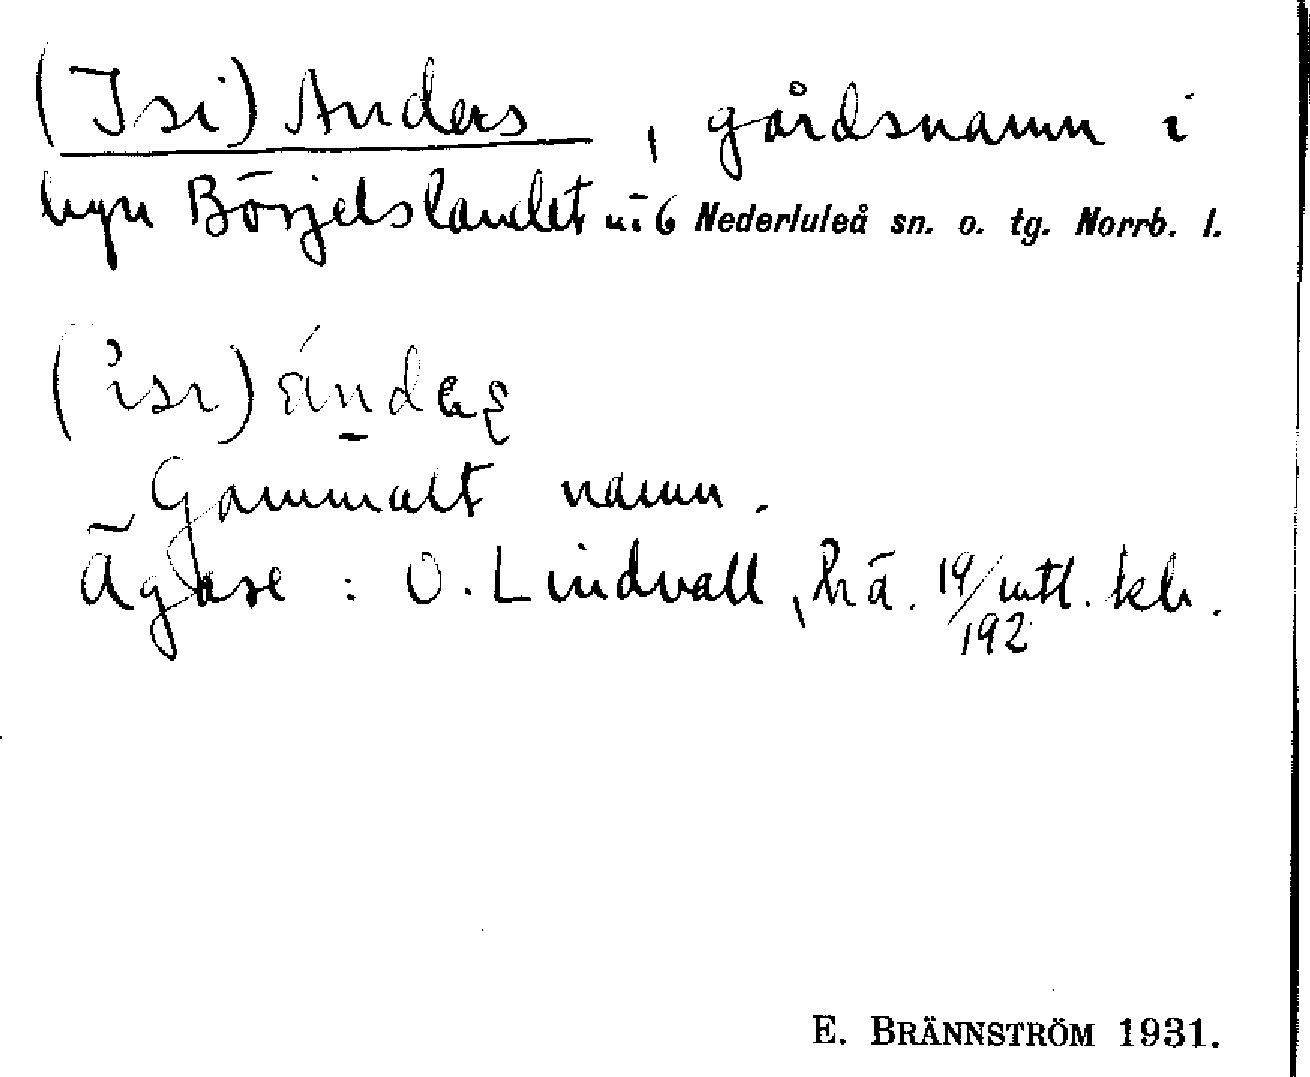 (Isi) Anders, gårdsnamn i
byn Börjelslandet nr 6 Nederluleå sn. o. tg. Norrb. l.
Gammalt namn.
Ägare: O. Lindvall, hä. 19/192 mtl. kr.
E. BRÄNNSTRÖM 1931.